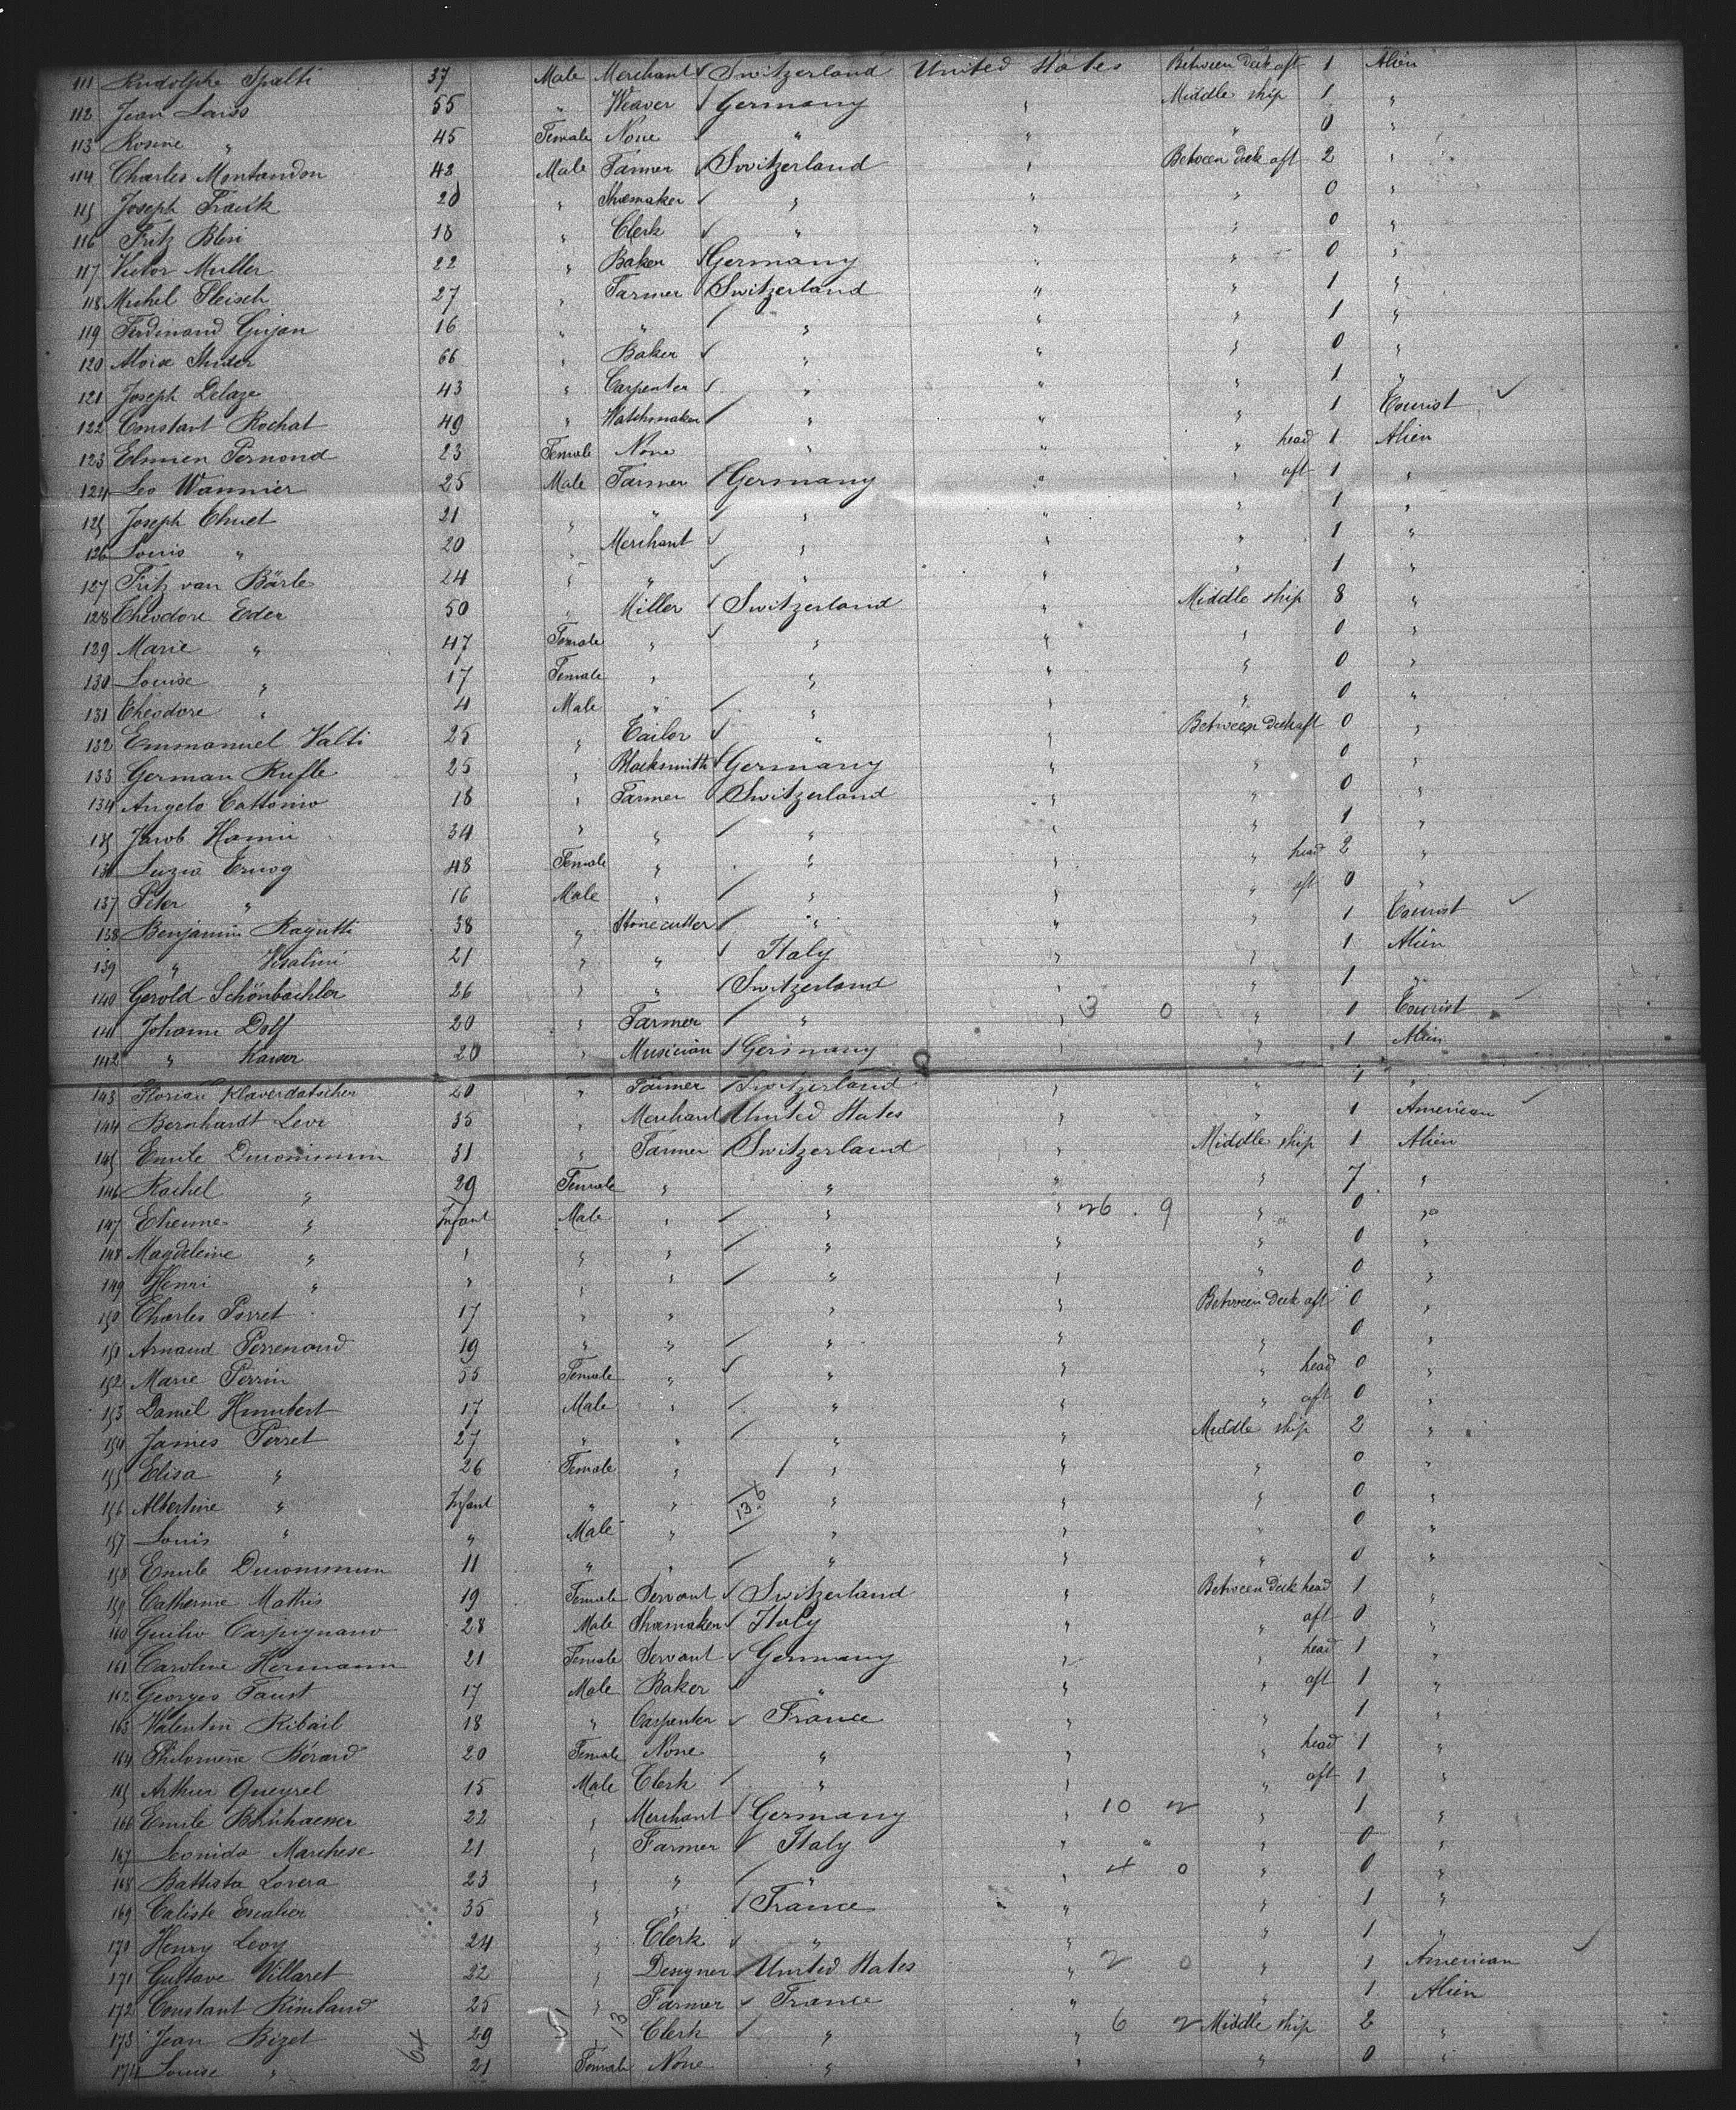 111 Rudolphe Spalti 37 Male Merchant Switzerland United States Between deck aft 1 Alien
112 Jean Laiss 55 " Weaver Germany " Middle ship 1 "
113 Rosine " 45 Female None " " " 0 "
114 Charles Montandon 43 Male Farmer Switzerland " Between deck aft 2 "
115 Joseph Frank 20 " Shoemaker " " " 0 "
116 Fritz Bleri 18 " Clerk " " " 0 "
117 Victor Muller 22 " Baker Germany " " 0 "
118 Michel Fleisch 27 " Farmer Switzerland " " 1 "
119 Ferdinand Grijan 16 " " " " " 1 "
120 Aloise Studer 66 " Baker " " " 0 "
121 Joseph Delaze 43 " Carpenter " " " 1 "
122 Constant Rochat 49 " Watchmaker " " " 1 Tourist
123 Elmien Pernond 23 Female None " " " head 1 Alien
124 Leo Wannier 25 Male Farmer Germany " " aft 1 "
125 Joseph Ehret 21 " " " " " 1 "
126 Louis " 20 " Merchant " " " 1 "
127 Fritz van Bärle 24 " " " " " 1 "
128 Theodore Eder 50 " Miller Switzerland " Middle ship 8 "
129 Marie " 47 Female " " " " 0 "
130 Louise " 17 Female " " " " 0 "
131 Theodore " 4 Male " " " " 0 "
132 Emmanuel Valti 25 " Tailor " " Between deck aft 0 "
133 German Rufle 25 " Blacksmith Germany " " 0 "
134 Angelo Cattonio 18 " Farmer Switzerland " " 0 "
135 Jacob Hanni 34 " " " " " 1 "
136 Luzia 48 Female " " " " head 2 "
137 Peter " 16 Male " " " " aft 0 "
138 Benjamin Ragutti 38 " Stonecutter " " " 1 Tourist
139 " Visalini 21 " " Italy " " 1 Alien
140 Gerold Schönbächler 26 " " Switzerland " " 1 "
141 Johann Dolf 20 " Farmer " " 3 0 " 1 Tourist
142 " Kaiser 20 " Musician Germany " " 1 Alien
143 Florian Klaverdatscher 20 " Farmer Switzerland " " 1 "
144 Bernhardt Levi 35 " Merchant United States " " 1 American
145 Emile Ducommun 31 " Farmer Switzerland " Middle ship 1 Alien
146 Rachel " 29 Female " " " " 7 "
147 Etienne " Infant Male " " " 26 . 9 " 0 "
148 Magdeleine " " " " " " " 0 "
149 Henri " " " " " " " 0 "
150 Charles Porret 17 " " " " Between deck aft 0 "
151 Arnaud Perrenoud 19 " " " " " 0 "
152 Marie Perrin 55 Female " " " " head 0 "
153 Daniel Humbert 17 Male " " " " aft 0 "
154 James Perret 27 " " " " Middle ship 2 "
155 Elisa " 26 Female " " " " 0 "
156 Albertine " Infant " " 13.6 " " " 0 "
157 Louis " " Male " " " " 0 "
158 Emile Ducommun 11 " " " " " 0 "
159 Catherine Mathis 19 Female Servant Switzerland " Between deck head 1 "
160 Guilio Carpignano 28 Male Shoemaker Italy " " aft 0 "
161 Caroline Hermann 21 Female Servant Germany " " head 1 "
162 Georges Faust 17 Male Baker " " " aft 1 "
163 Valentin Ribail 18 " Carpenter France " " 1 "
164 Philomene Bérard 20 Female None " " " head 1 "
165 Arthur Queyrel 15 Male Clerk " " " aft 1 "
166 Emile 22 " Merchant Germany " 10 2 " 1 "
167 Leonida Marchese 21 " Farmer Italy " " 0 "
168 Battista Lovera 23 " " " " 4 0 " 0 "
169 Caliste Escalier 35 " " France " " 1 "
170 Henry Levy 24 " Clerk " " " 1 "
171 Gustave Villaret 22 " Designer United States " 2 0 " 1 American
172 Constant Rimbaud 25 " Farmer France " " 1 Alien
173 Jean Bizet 64 29 " 13 Clerk " " 6 2 Middle ship 2 "
174 Louise " 21 Female None " " " 0 "